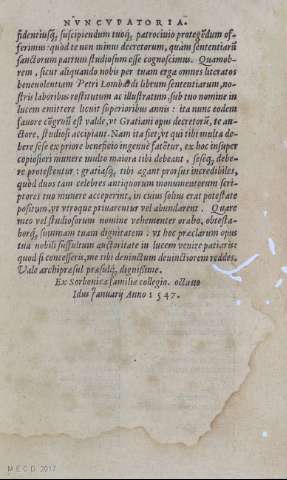 NVNCVPATORIA.
fidentiusq́, suscipiendum tuoq́, patrocinio protegẽdum of-
ferimus: quòd te non minus decretorum, quàm sententiarũ
sanctorum patrum studiosum esse cognoscimus. Quamob-
rem, sicut aliquando nobis per tuam erga omnes literatos
beneuolentiam Petri Lombardi librum sententiarum, no-
stris laboribus restitutum ac illustratum, sub tuo nomine in
lucem emittere licuit superioribus annis: ita nunc eodem
fauore cõgruũ est valde, vt Gratiani opus decretorũ, te au-
ctore, studiosi accipiant. Nam ita fiet, vt qui tibi multa de-
bere sese ex priore beneficio ingenuè fatẽtur, ex hoc insuper
copiosiori munere multo maiora tibi debeant, seseq́, debe-
re protestentur: gratiasq́, tibi agant prorsus incredibiles,
quòd duos tam celebres antiquorum monumentorum scri-
ptores tuo munere acceperint, in cuius solius erat potestate
positum, vt vtroque priuarentur vel abundarent. Quare
meo vel studiosorum nomine vehementer orabo, obtesta-
borq́, summam tuam dignitatem: vt hoc præclarum opus
tua nobili suffultum auctoritate in lucem venire patiaris:
quod si concesseris, me tibi deuinctum deuinctiorem reddes.
Vale archipræsul præsulq́, dignissime.
Ex Sorbonicæ familiæ collegio. octauo
Idus Ianuarij Anno 1547.
M.E.C.D. 2017